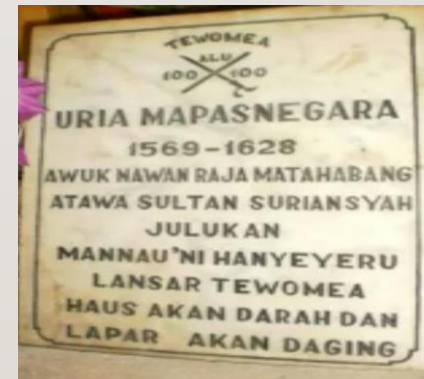 TEWOMEA
ALU
100 100
URIA MAPASNEGARA
1569-1628
AWUK NAWAN RAJA MATAHABANG
ATAWA SULTAN SURIANSYAH
JULUKAN
MANNAU'NI HANYEYERU
LANSAR TEWOMEA
HAUS AKAN DARAH DAN
LAPAR AKAN DAGING